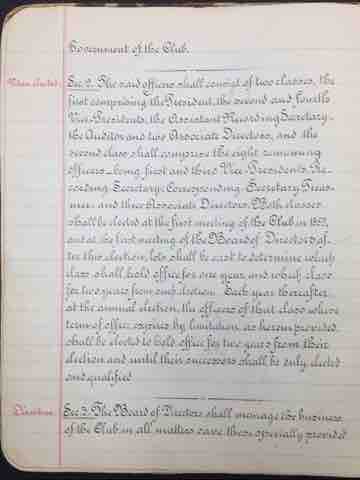 Government of the Club.
When elected. Sec. 2. The said officers shall consist of two classes, the
first comprising the President, the second and fourth
Vice-Presidents, the Assistant Recording Secretary,
the Auditor and two Associate Directors, and the
second class shall comprise the eight remaining
officers being first and third Vice-Presidents, Re-
cording Secretary, Corresponding Secretary, Treas-
urer and three Associate Directors. Both classes
shall be elected at the first meeting of the Club in
and at the first meeting of the Board of Directors af-
ter this election, lots shall be cast to determine which
class shall hold office for one year and which class
for two years from such election. Each year thereafter
at the annual election, the officers of that class whose
term of office expires by limitation, as herein provided,
shall be elected to hold office for two years from their
election and until their successors shall be duly elected
and qualified.
Directors. Sec. 3. The Board of Directors shall manage the business
of the Club in all matters save those specially provided